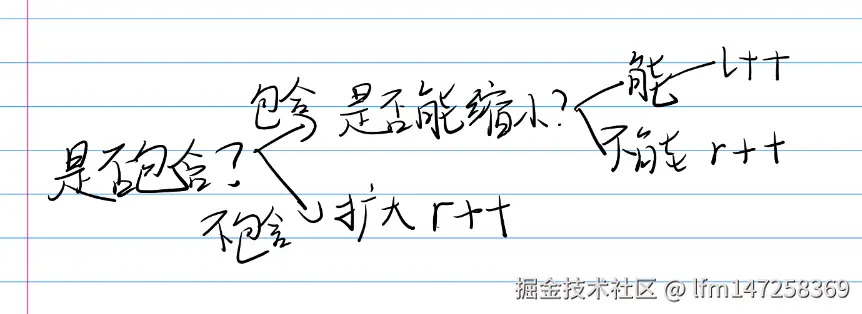 能 l++
包含 是否能缩小?
不能 r++
是否包含?
不包含 扩大 r++
掘金技术社区 @ lfm147258369